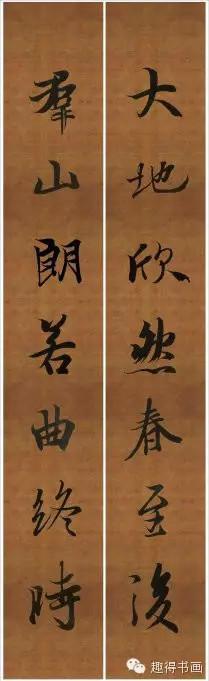 大地欣然春至後
群山朗若曲终時
趣得书画